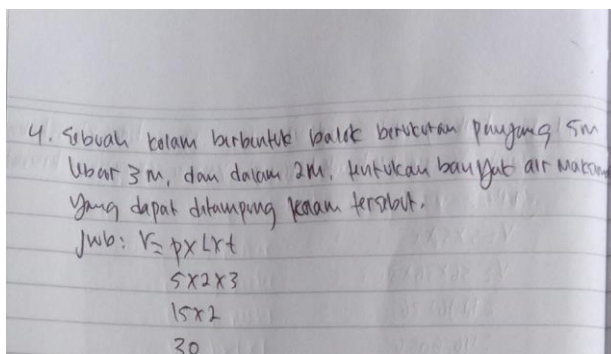 4. Sebuah kolam berbentuk balok berukuran panjang 5m
lebar 3m, dan dalam 2m. tentukan banyak air maksim
yang dapat ditampung kolam tersebut.
Jwb: V= pxLxt
5x2x3
15x2
30